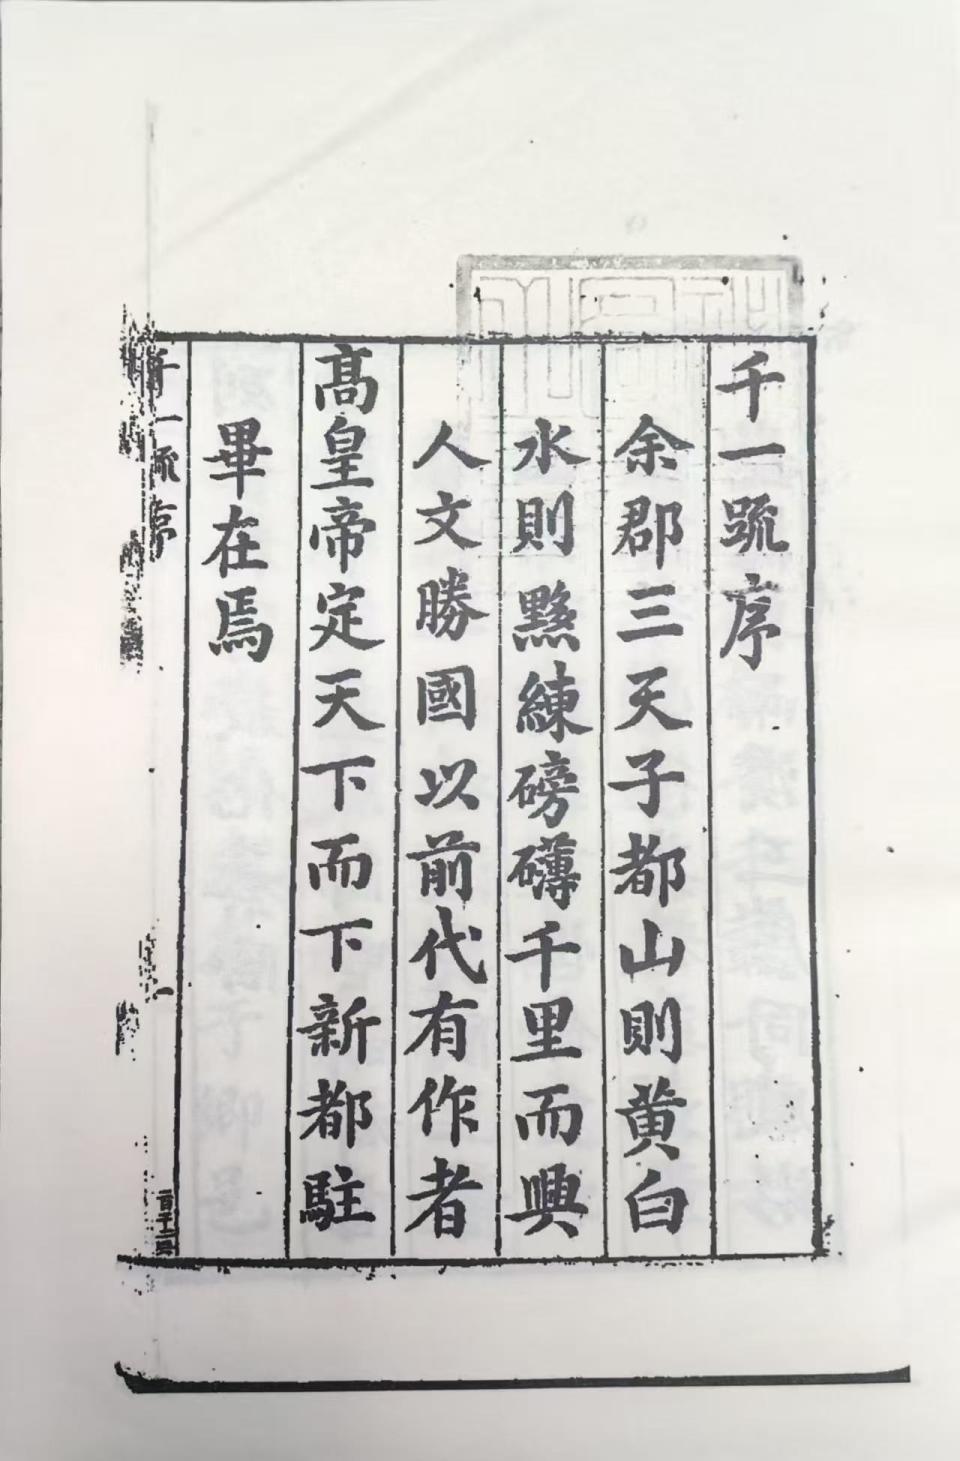 千一䟽序
余郡三天子都山則黄白
水則黟練磅礴千里而興
人文勝國以前代有作者
髙皇帝定天下而下新都駐
畢在焉
千一䟽序
一